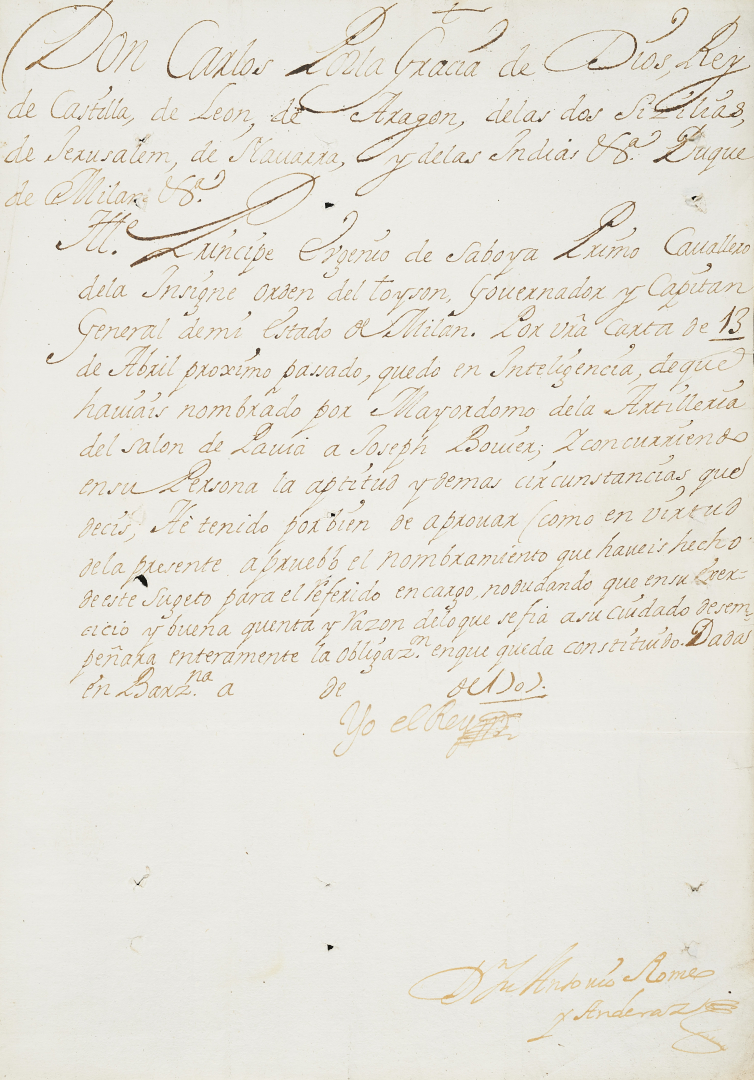 Don Carlos Por la Gracia de Dios, Rey
de Castilla, de Leon, de Aragon, de las dos Sizilias,
de Jerusalem, de Navarra, y de las Indias &ª. Duque
de Milan &ª.
Ill.e Principe Eugenio de Saboya Primo Cavallero
dela Insigne orden del toyson, Governador y Capitan
General demi Estado de Milan. Por vrã Carta de 13
de Abril proximo passado, quedo en Inteligencia, de que
haviais nombrado por Mayordomo dela Artilleria
del salon de Pavia a Joseph Bovier; Y concurriendo
ensu Persona la aptitud y demas circunstancias que
decis, Hé tenido por bien de aprovar (como en virtud
dela presente apruebo el nombramiento que haveis hecho
de este Sugeto para el referido encargo, nodudando que ensu Exer-
cicio y buena quenta y razon deloque se fia asu cuidado desem-
peñara enteramente la obligaz.n enque queda constituido. Dada
en Barz.na a de de 1707.
Yo el Rey
D.n Antonio Romeo
y Anderaz